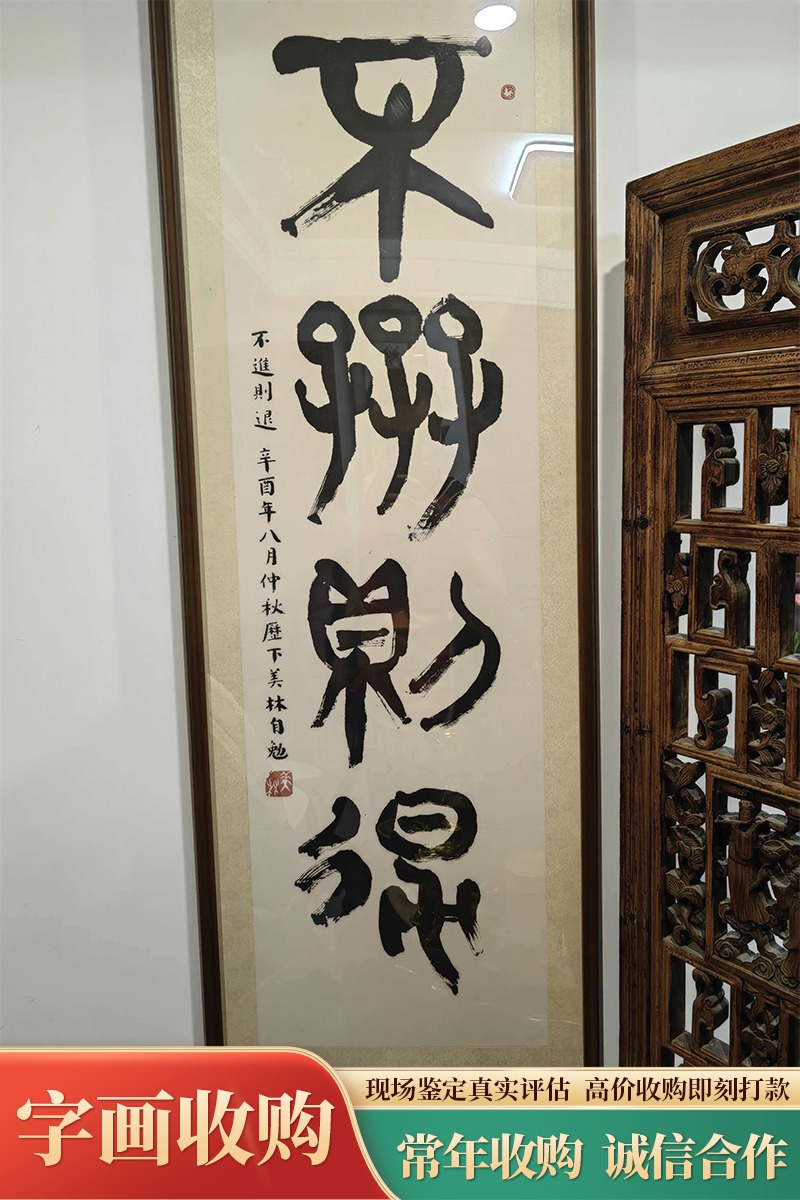 不進則退
不進則退 辛酉年八月仲秋歷下美林自勉
美林
字画收购
现场鉴定真实评估 高价收购即刻打款
常年收购 诚信合作